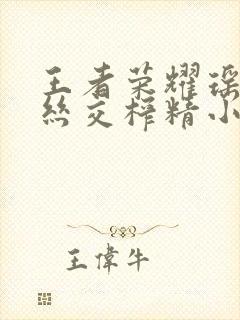 王者荣耀瑶
丝交榨精小
王偉牛